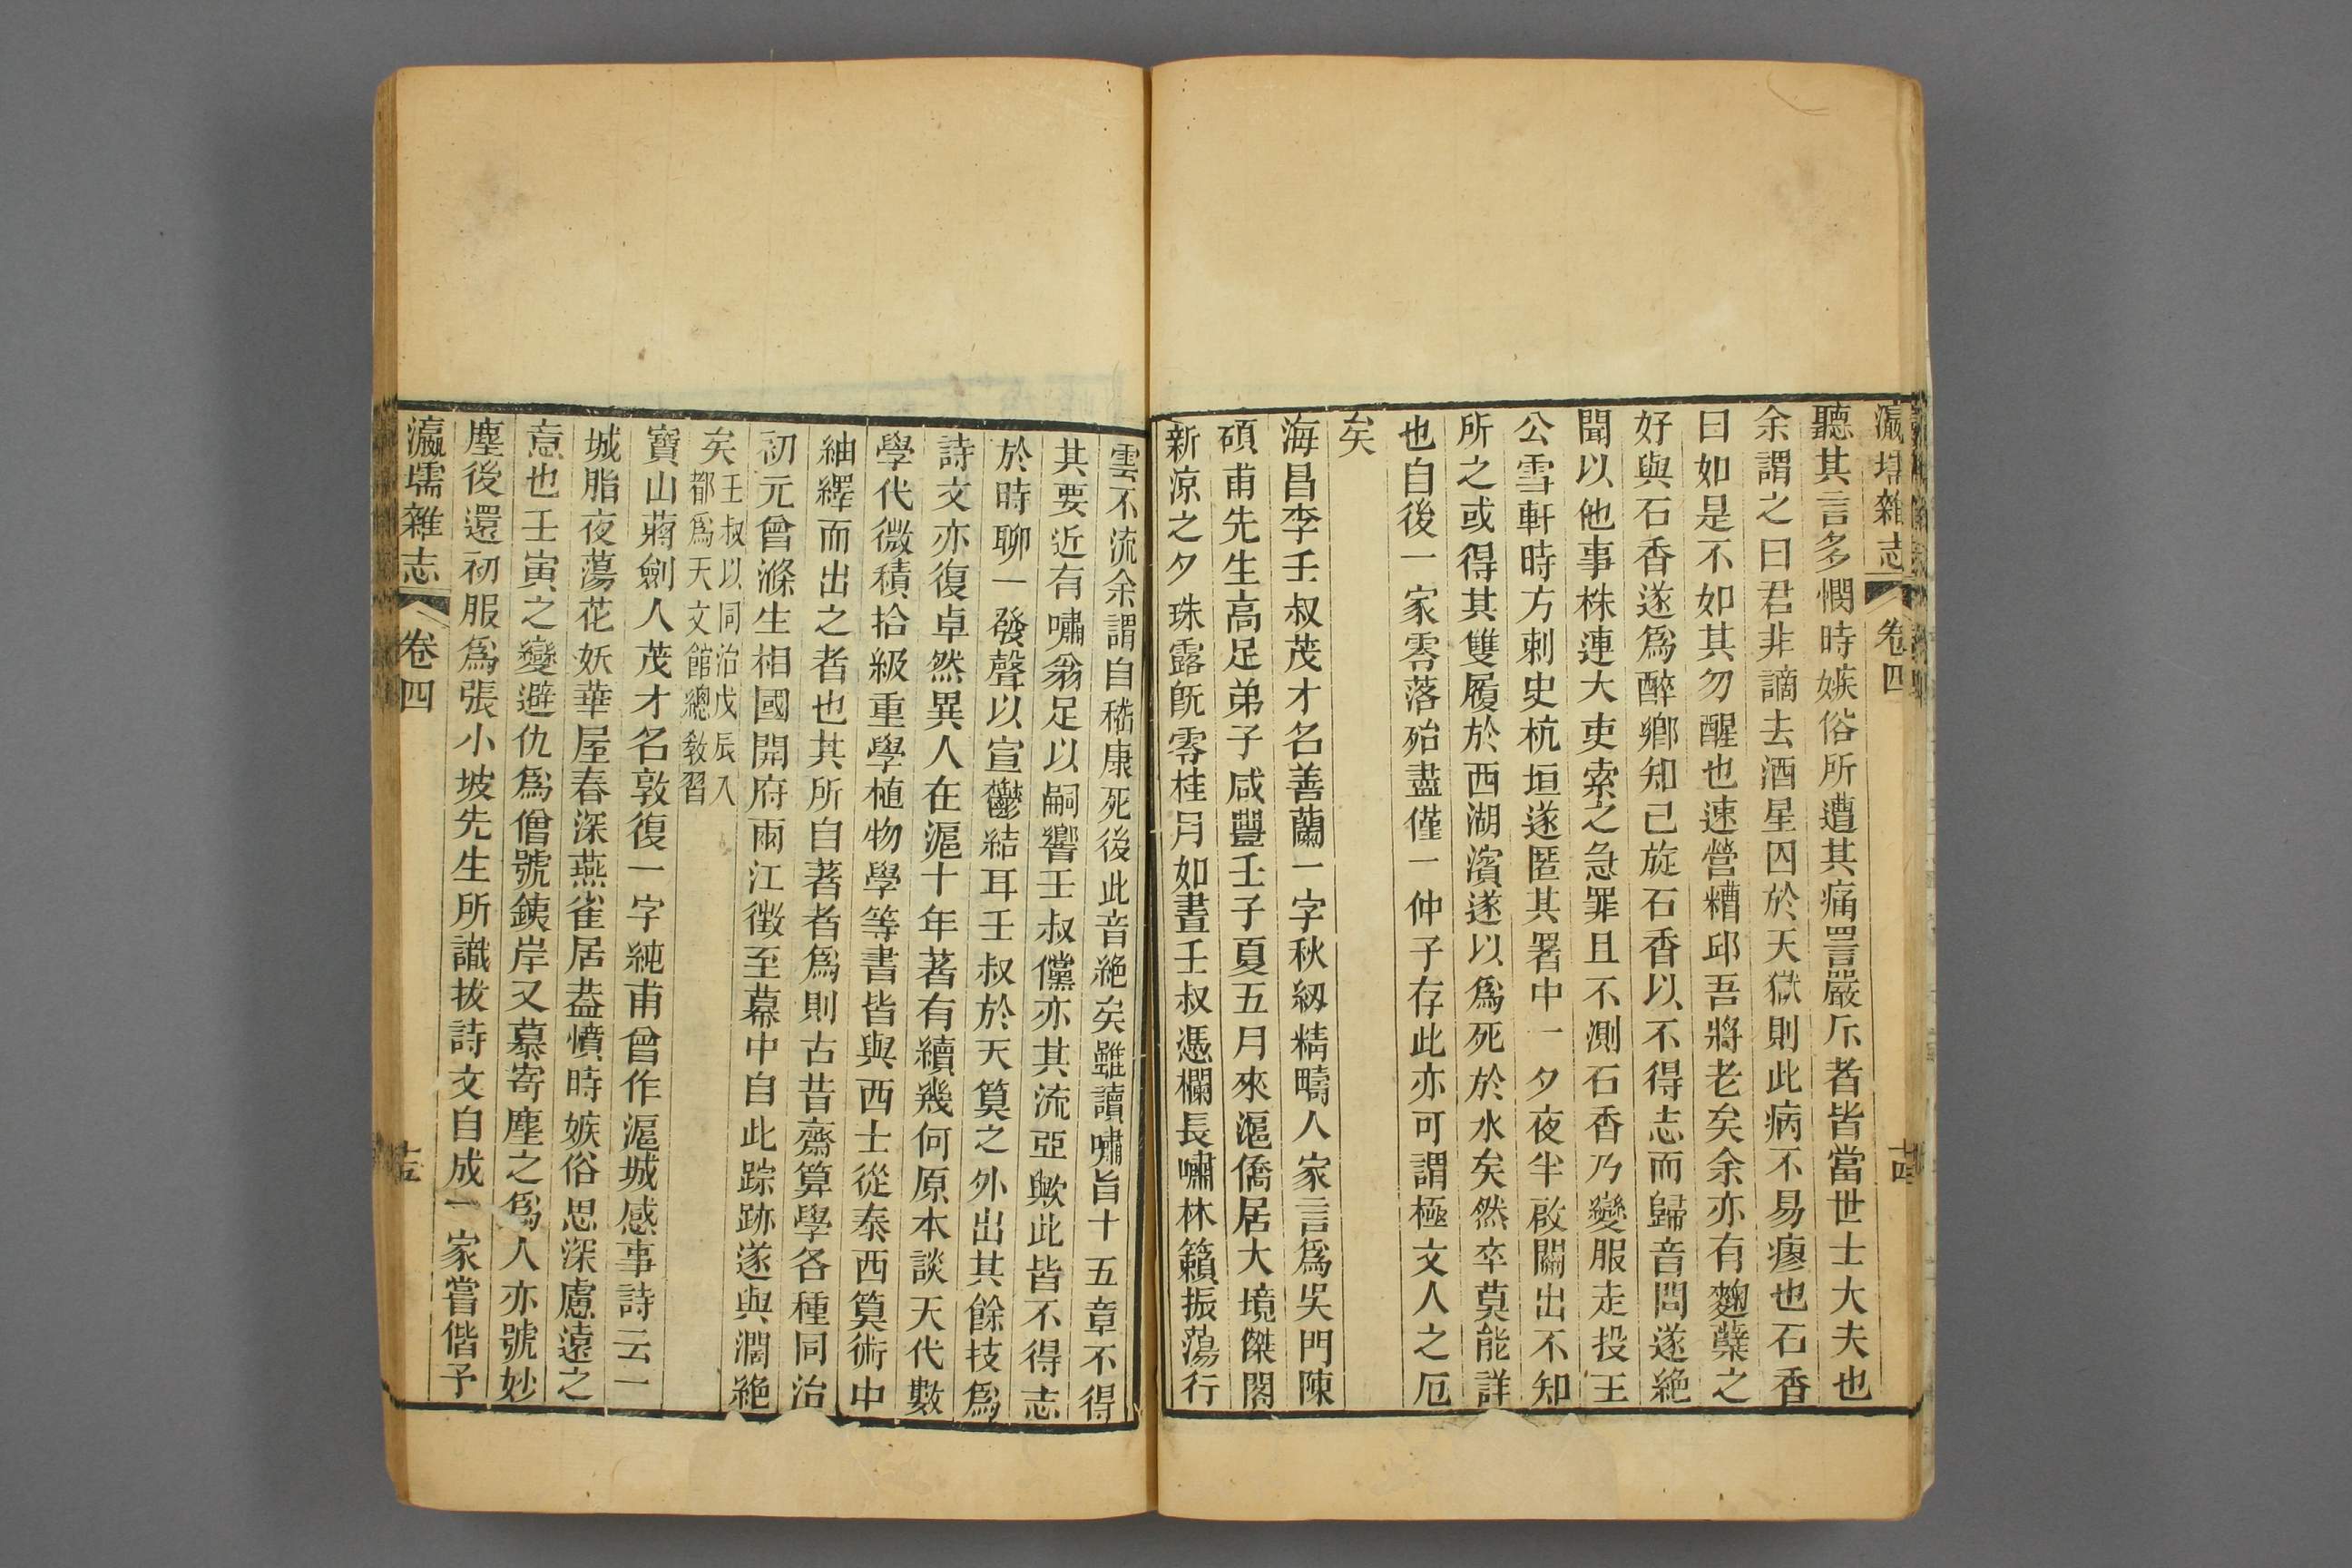 瀛壖雜志 卷四 十四
聽其言多憫時嫉俗所遭其痛詈嚴斥者皆當世士大夫也
余謂之曰君非謫去酒星囚於天獄則此病不易瘳也石香
曰如是不如其勿醒也速營糟邱吾將老矣余亦有麴糵之
好與石香遂爲醉鄉知己旋石香以不得志而歸音問遂絶
聞以他事株連大吏索之急罪且不測石香乃變服走投王
公雪軒時方刺史杭垣遂匿其署中一夕夜半啟關出不知
所之或得其雙履於西湖濱遂以爲死於水矣然卒莫能詳
也自後一家零落殆盡僅一仲子存此亦可謂極文人之厄
矣
海昌李壬叔茂才名善蘭一字秋紉精疇人家言爲吳門陳
碩甫先生高足弟子咸豐壬子夏五月來滬僑居大境傑閣
新涼之夕珠露旣零桂月如晝壬叔憑欄長嘯林籟振蕩行
雲不流余謂自稽康死後此音絶矣雖讀嘯旨十五章不得
其要近有嘯翁足以嗣響壬叔儻亦其流亞歟此皆不得志
於時聊一發聲以宣鬱結耳壬叔於天算之外出其餘技爲
詩文亦復卓然異人在滬十年著有續幾何原本談天代數
學代微積拾級重學植物學等書皆與西士從泰西算術中
紬繹而出之者也其所自著者爲則古昔齋算學各種同治
初元曾滌生相國開府兩江徵至幕中自此踪跡遂與濶絶
矣壬叔以同治戊辰入都爲天文館總敎習
寶山蔣劍人茂才名敦復一字純甫曾作滬城感事詩云一
城脂夜蕩花妖華屋春深燕雀居葢憤時嫉俗思深慮遠之
意也壬寅之變避仇爲僧號銕岸又慕寄塵之爲人亦號妙
塵後還初服爲張小坡先生所識拔詩文自成一家嘗偕予
瀛壖雜志 卷四 十五